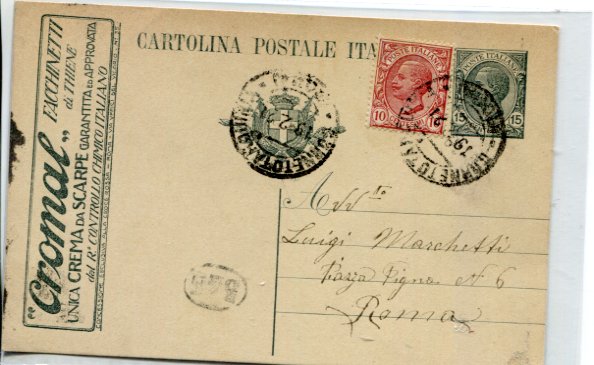 CARTOLINA POSTALE ITA
"Cromal„
FACCHINETTI
di THIENE
UNICA CREMA DA SCARPE GARANTITA ED APPROVATA
dal Rº CONTROLLO CHIMICO ITALIANO
POSTE ITALIANE
10 10
POSTE ITALIANE
15 15
CORNETO TARQUINIA
CORNETO TA
Avv.to
Luigi Marchetti
Piazza Pigna Nº 6
Roma